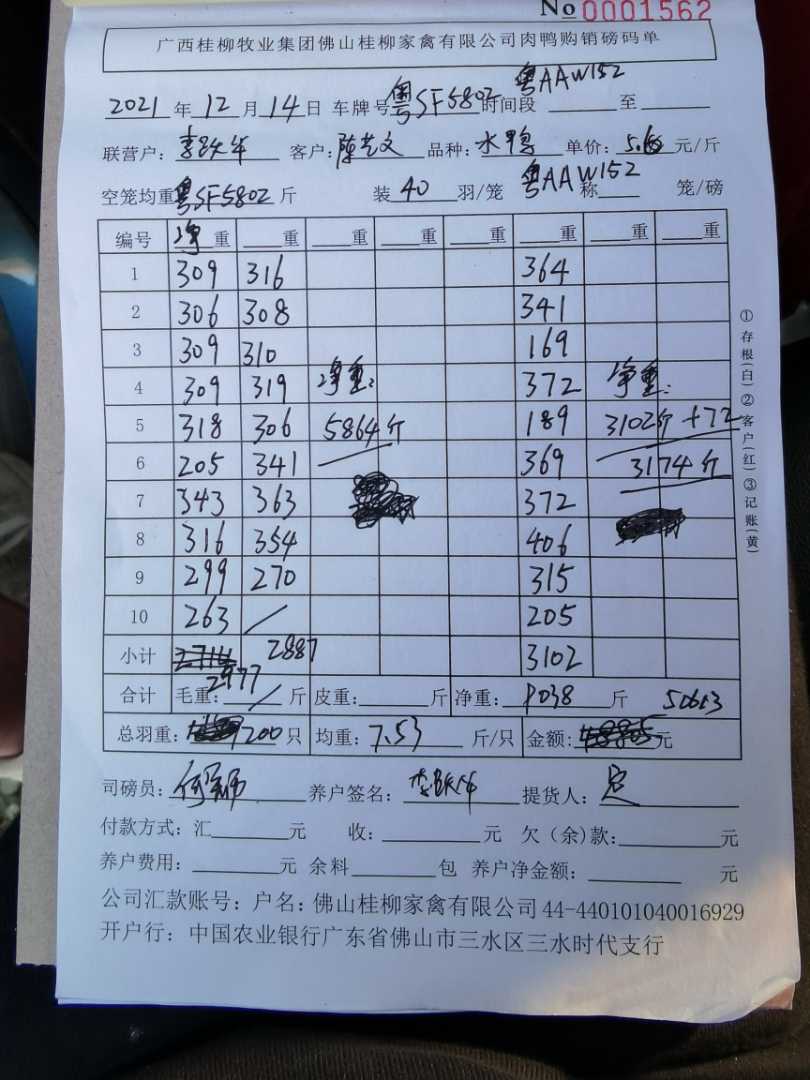 No 0001562
广西桂柳牧业集团佛山桂柳家禽有限公司肉鸭购销磅码单
2021年12月14日 车牌号粤SF5802 时间段 粤AAW152 至
联营户: 李跃华 客户: 陈艺文 品种: 水鸭 单价: 元/斤
空笼均重 粤SF5802 斤 装 40 羽/笼 粤AAW152 称 笼/磅
编号 净重 重 重 重 重 重 重 重
1 309 316 364
2 306 308 341
3 309 310 169
4 309 319 净重: 372 净重:
5 318 306 5864斤 189 3102斤 +72
6 205 341 369 3174斤
7 343 363 372
8 316 354 406
9 299 270 315
10 263 / 205
小计 2887 3102
2977
合计 毛重: / 斤 皮重: 斤 净重: 9038 斤 50613
总羽重: 1200 只 均重: 7.53 斤/只 金额: 元
司磅员: 养户签名: 提货人:
付款方式: 汇 元 收: 元 欠(余)款: 元
养户费用: 元 余料 包 养户净金额: 元
公司汇款账号: 户名: 佛山桂柳家禽有限公司 44-440101040016929
开户行: 中国农业银行广东省佛山市三水区三水时代支行
①存根(白)②客户(红)③记账(黄)